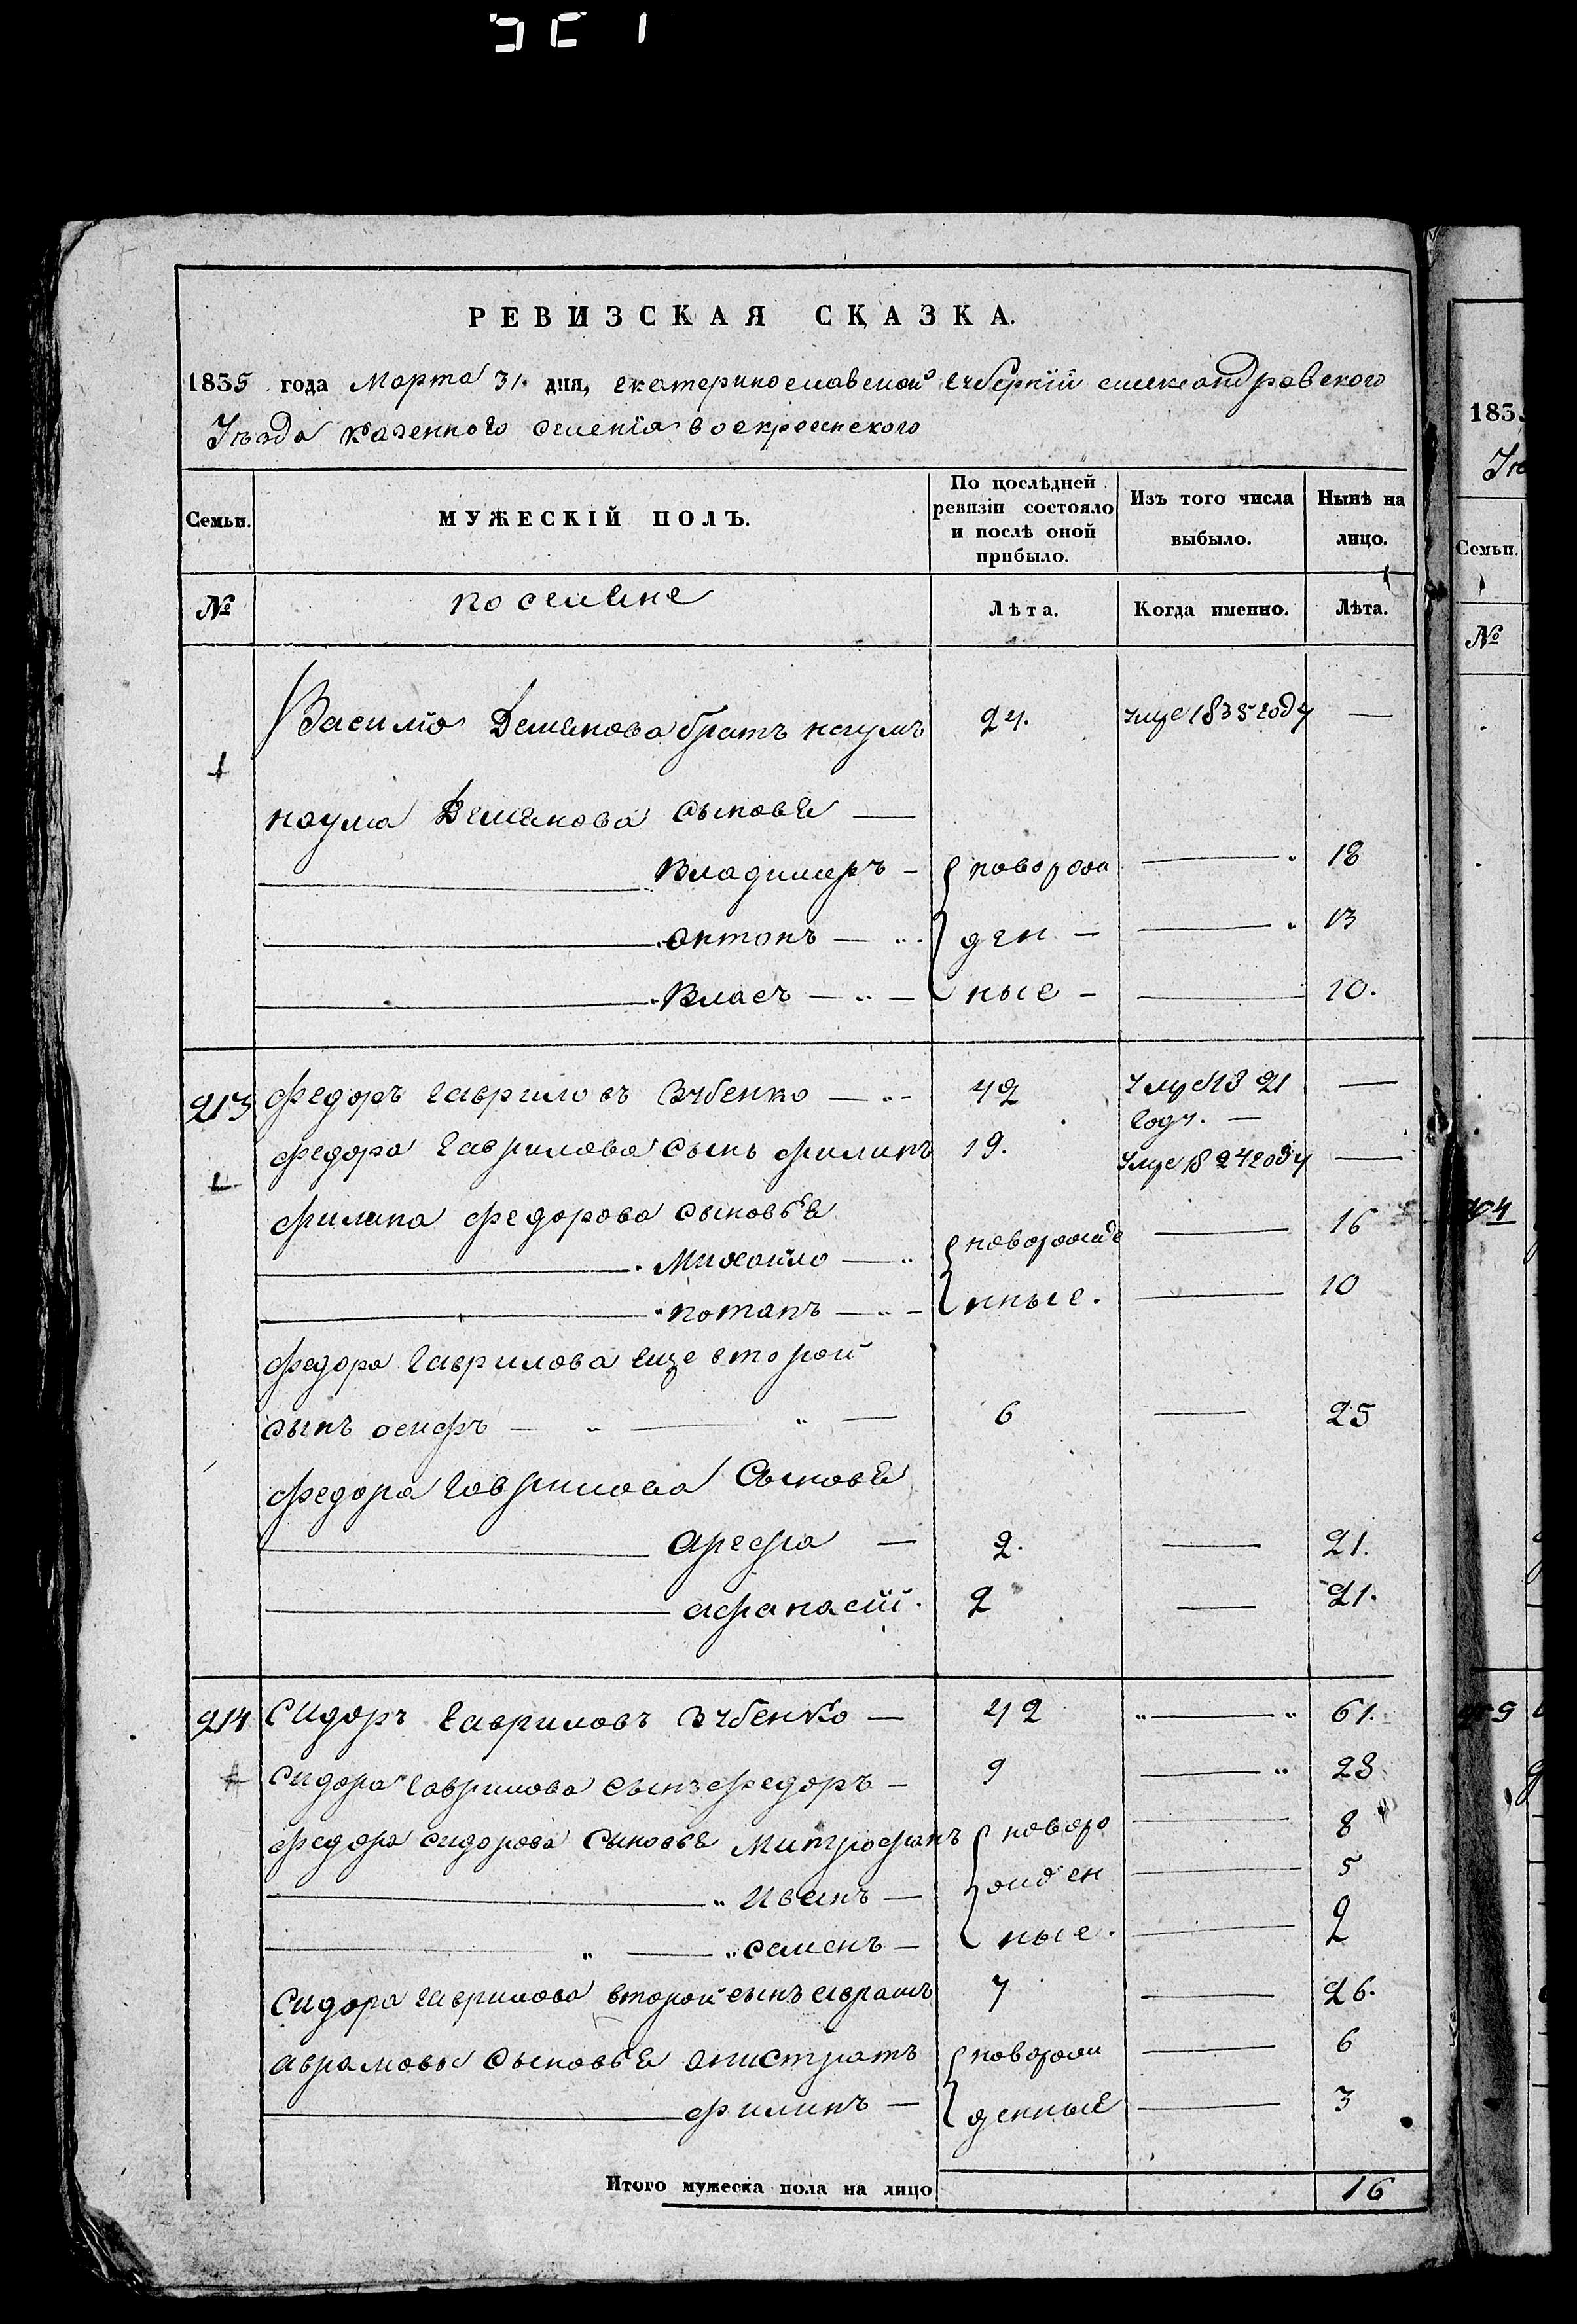 РЕВИЗСКАЯ СКАЗКА.
1835 года Марта 31. дня, екатеринославской губернїи александровского
Уезда казенного селенїя воскресенского
Семьи. МУЖЕСКІЙ ПОЛЪ. По послѣдней ревизіи состояло и послѣ оной прибыло. Изъ того числа выбыло. Нынѣ на лицо.
№ поселяне Лѣта. Когда именно. Лѣта.
Василїя Демянова братъ наумъ 24. умре 1835 году —
наума Демянова сыновья —
Владимеръ — новорож — 18
антонъ — ден — — 13
Власъ — ные — — 10.
213 федоръ гавриловъ Зубенко — 42 умре 1821 году. — —
федора гаврилова сынъ филипъ 19. умре 1824 году —
филипа федорова сыновья
Михайло — новорожде — 16
потапъ — нные. — 10
федора гаврилова еще второй
сынъ осифъ — 6 — 25
федора гаврилова сыновья
арефа — 2. — 21.
афанасїй. 2 — 21.
214 Сидоръ гавриловъ Зубенко — 42 — 61.
сидора гаврилова сынъ федоръ — 9 — 28
федора сидорова сыновья Митрофанъ новоро — 8
Иванъ — жден — 5
семенъ — ные. — 2
Сидора гаврилова второй сынъ аврамъ 7 — 26.
аврамовы сыновья анистратъ новорож — 6
филипъ — денные — 3
Итого мужеска пола на лицо 16
183
Семьи.
№